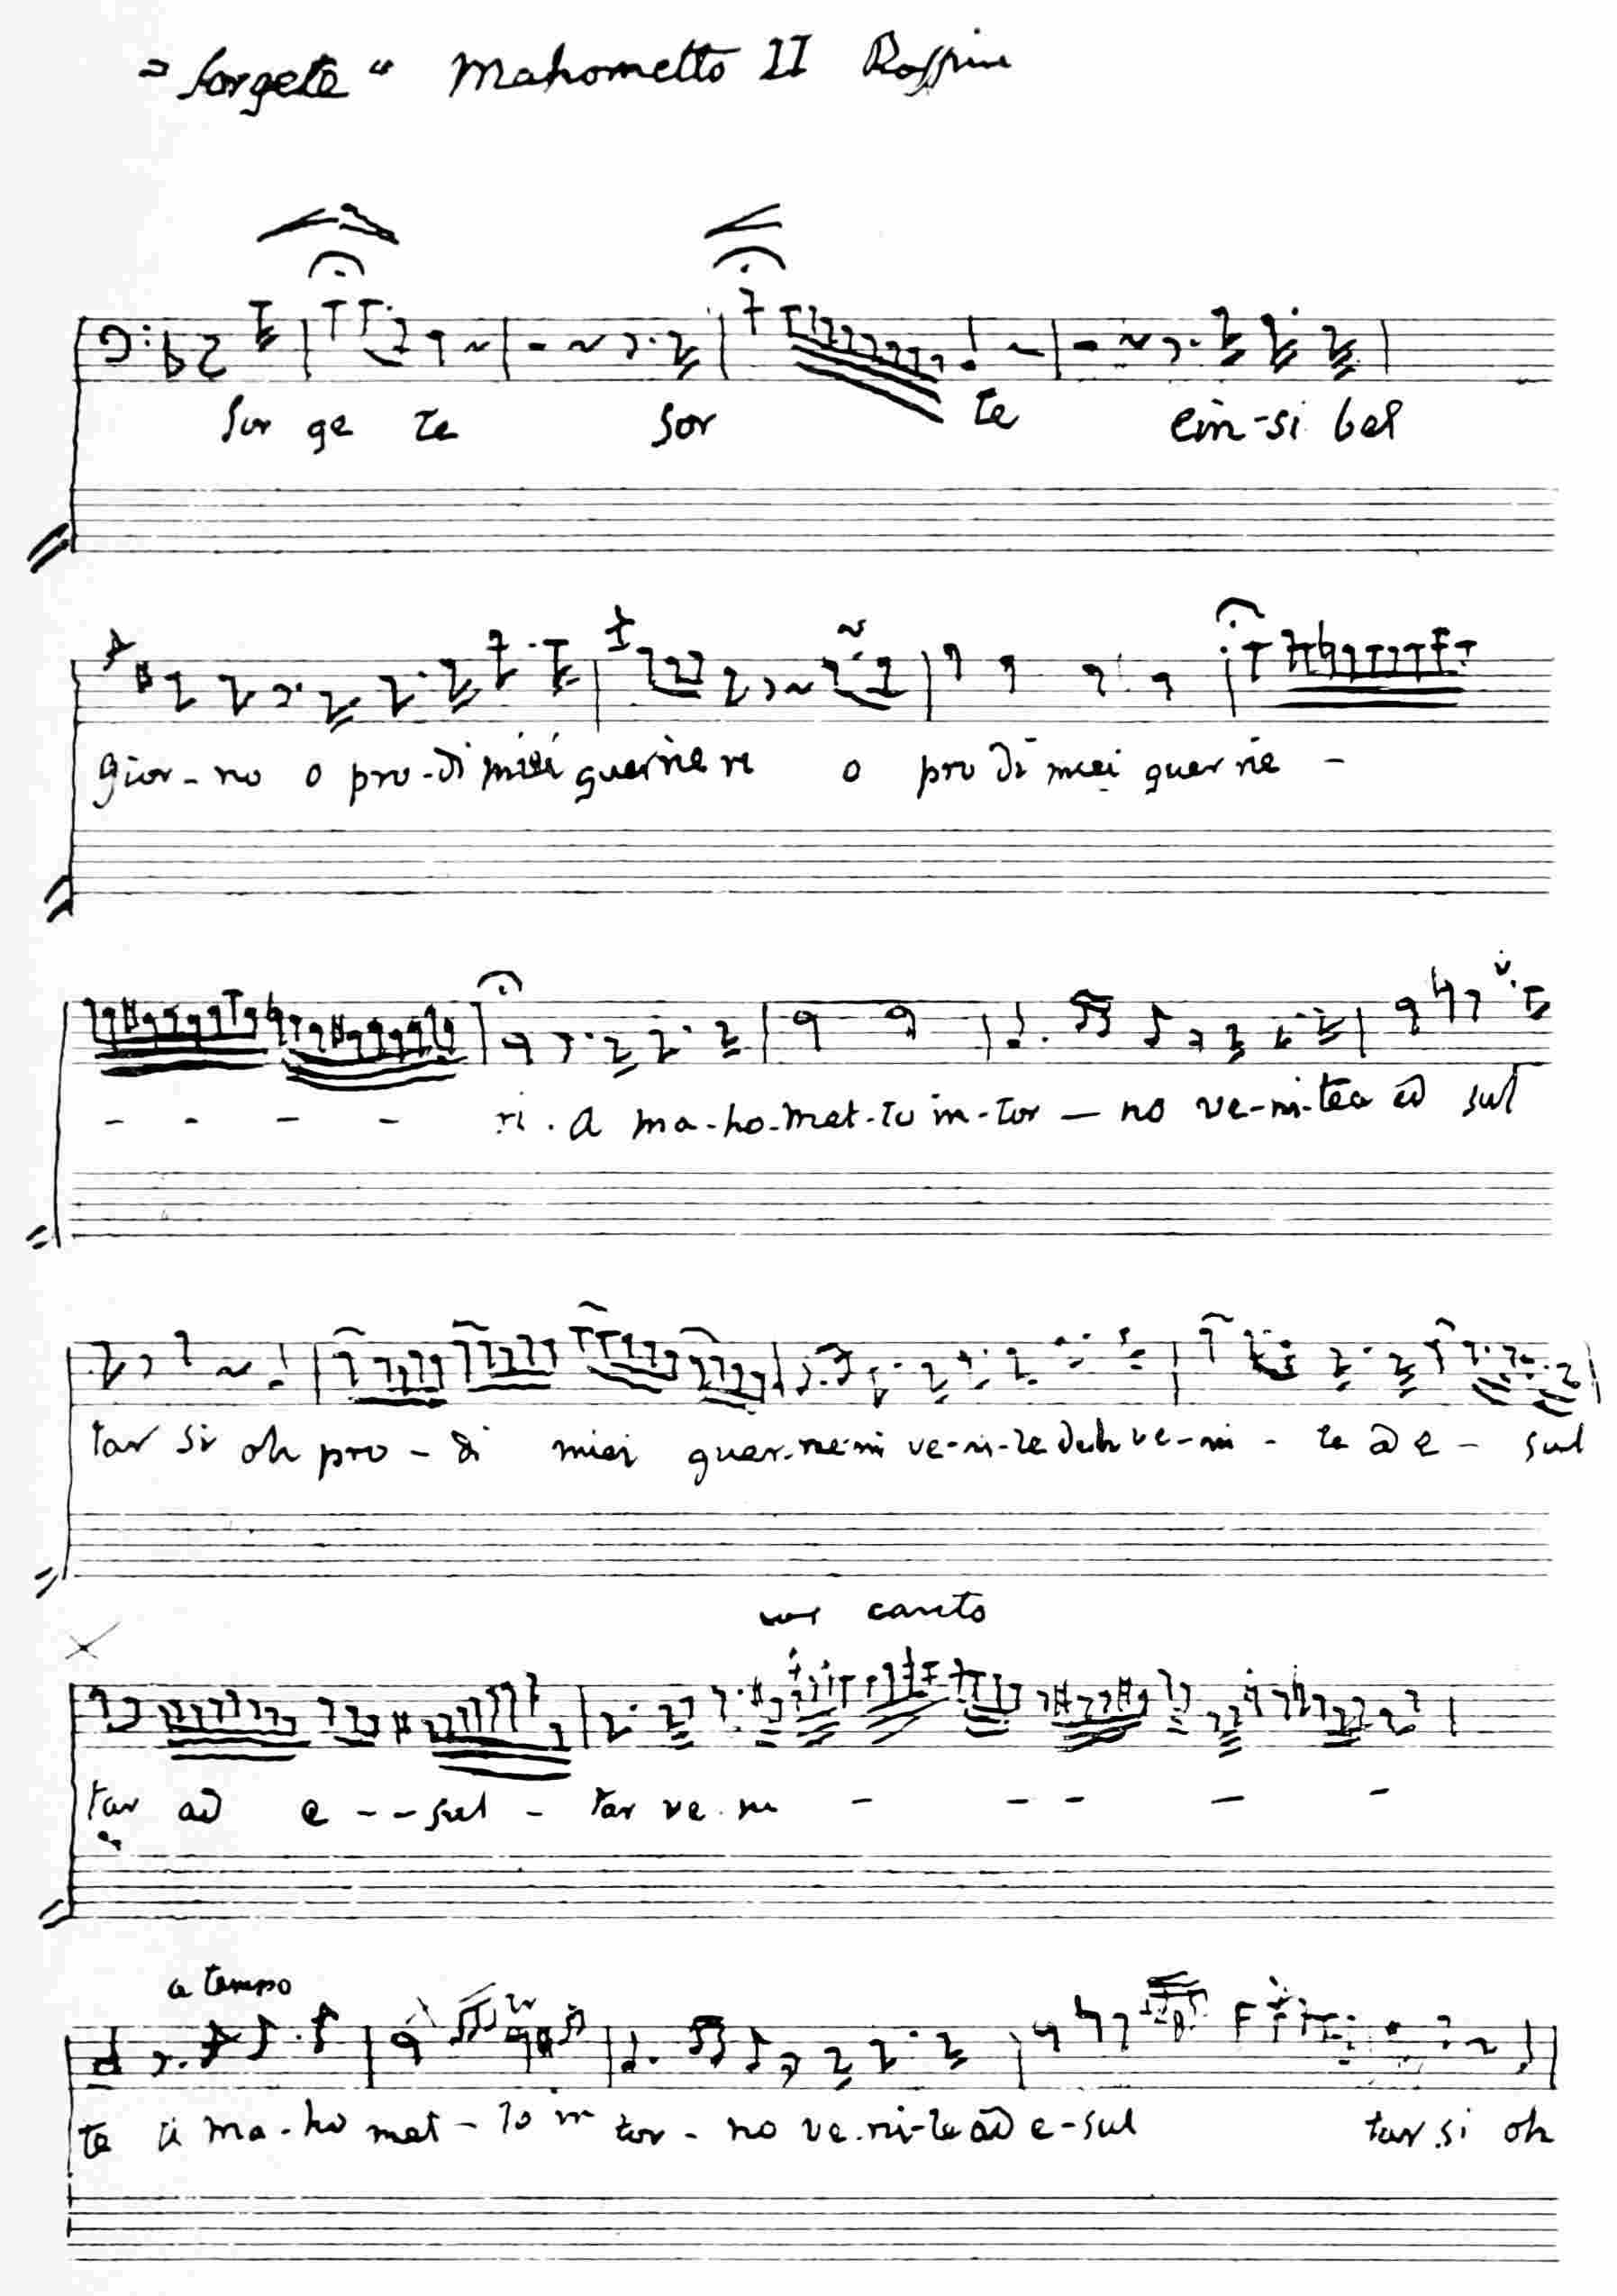 = Sorgete " Mahometto II Rossini
Sor ge te sor te ein-si bel
gior-no o pro-di miei guerrie ri o pro di miei guer rie -
- - - - ri. a ma-ho-met-to in-tor - no ve-ni-tea ad sul
tar si oh pro - di miei guer-rie-ri ve-ni-te deh ve-ni - te ad e - sul
con canto
tar ad e - - sul - tar ve. ni - - - - -
a tempo
te a ma-ho met - to in tor - no ve.ni-te ad e-sul tar.si oh